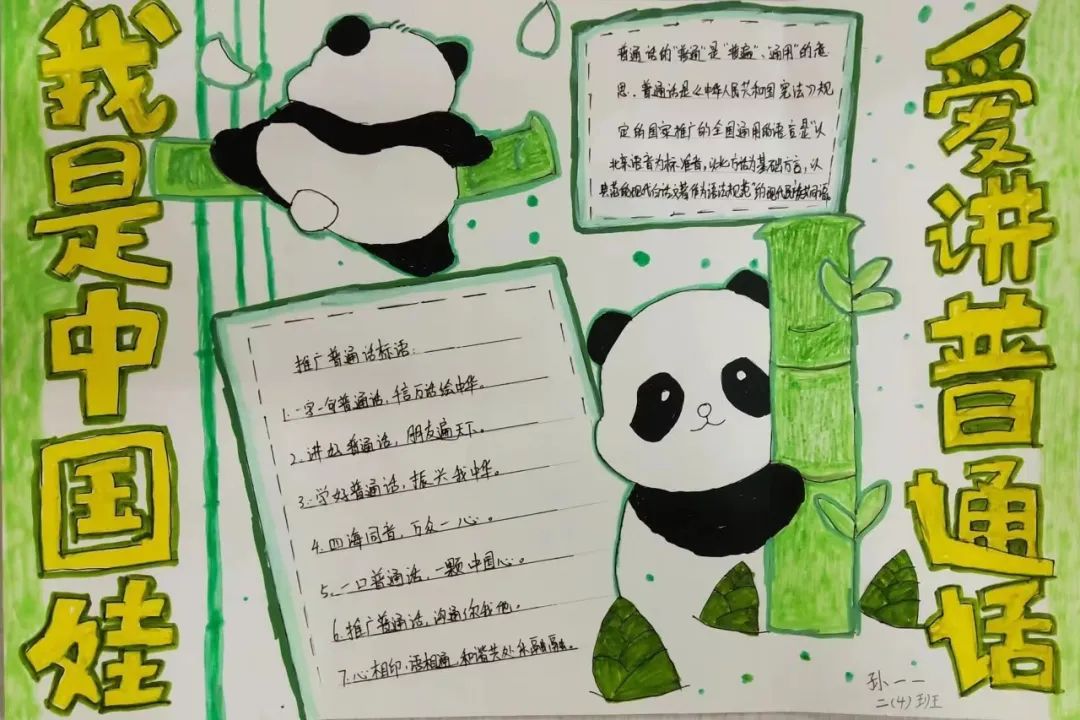 我是中国娃
爱讲普通话
普通话的"普通"是"普遍"、通用"的意
思。普通话是《中华人民共和国宪法》规
定的国家推广的全国通用的语言是"以
北京语音为标准音,以北方话为基础方言,以
典范的现代白话文著作为语法规范"的现代民族共同语
推广普通话标语:
1.一字一句普通话,千言万语绘中华。
2.讲好普通话,朋友遍天下。
3.学好普通话,振兴我中华。
4.四海同音,万众一心。
5.一口普通话,一颗中国心。
6.推广普通话,沟通你我他。
7.心相印,语相通,和谐共处乐融融。
孙一一
二(4)班